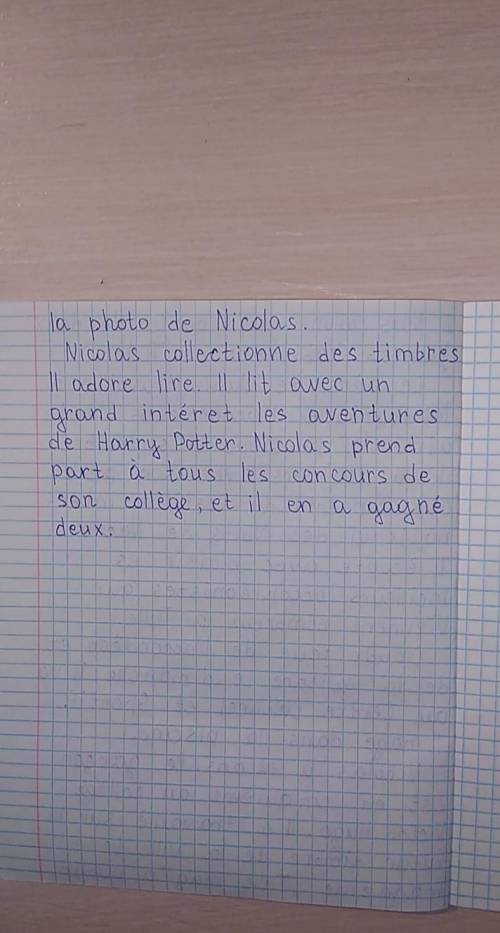 la photo de Nicolas.
Nicolas collectionne des timbres
Il adore lire. Il lit avec un
grand intéret les aventures
de Harry Potter. Nicolas prend
part à tous les concours de
son collège, et il en a gagné
deux.